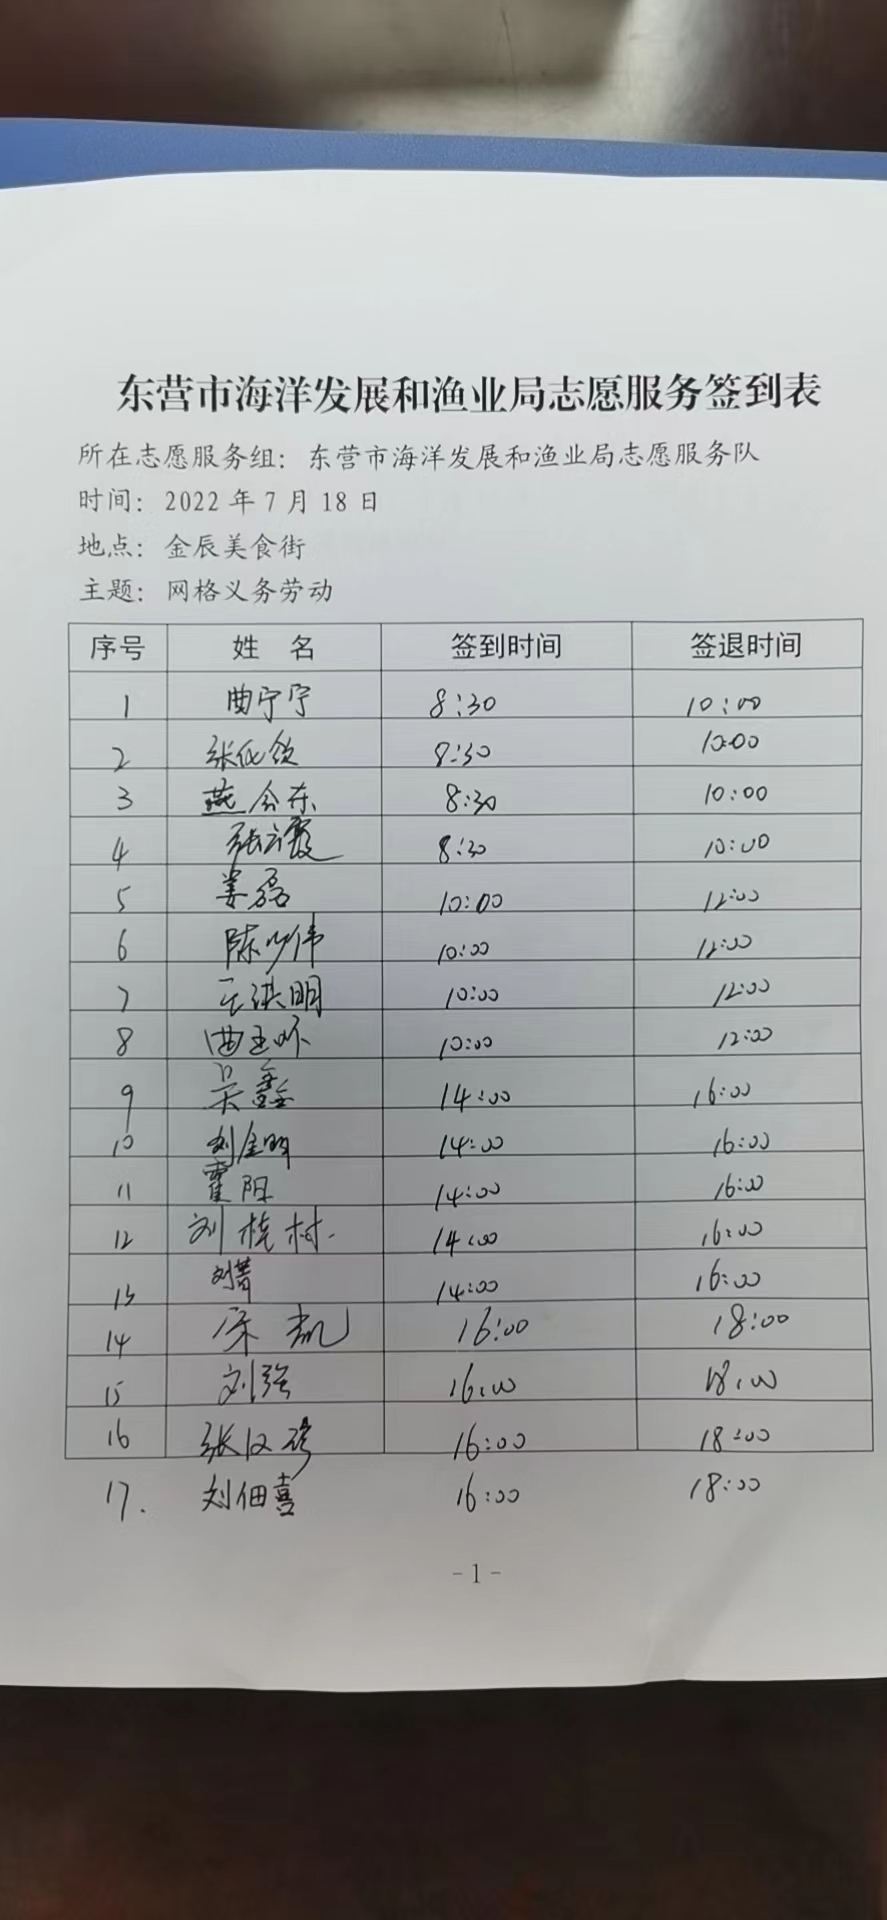 东营市海洋发展和渔业局志愿服务签到表
所在志愿服务组：东营市海洋发展和渔业局志愿服务队
时间：2022 年 7 月 18 日
地点：金辰美食街
主题：网格义务劳动
序号 姓 名 签到时间 签退时间
1 曲宁宁 8:30 10:00
2 8:30 10:00
3 燕会东 8:30 10:00
4 张云霞 8:30 10:00
5 姜磊 10:00 12:00
6 陈少伟 10:00 12:00
7 王洪明 10:00 12:00
8 10:00 12:00
9 吴鑫 14:00 16:00
10 刘金明 14:00 16:00
11 霍阳 14:00 16:00
12 刘桂村 14:00 16:00
13 刘菁 14:00 16:00
14 宋凯 16:00 18:00
15 刘强 16:00 18:00
16 16:00 18:00
17. 刘佃喜 16:00 18:00
- 1 -